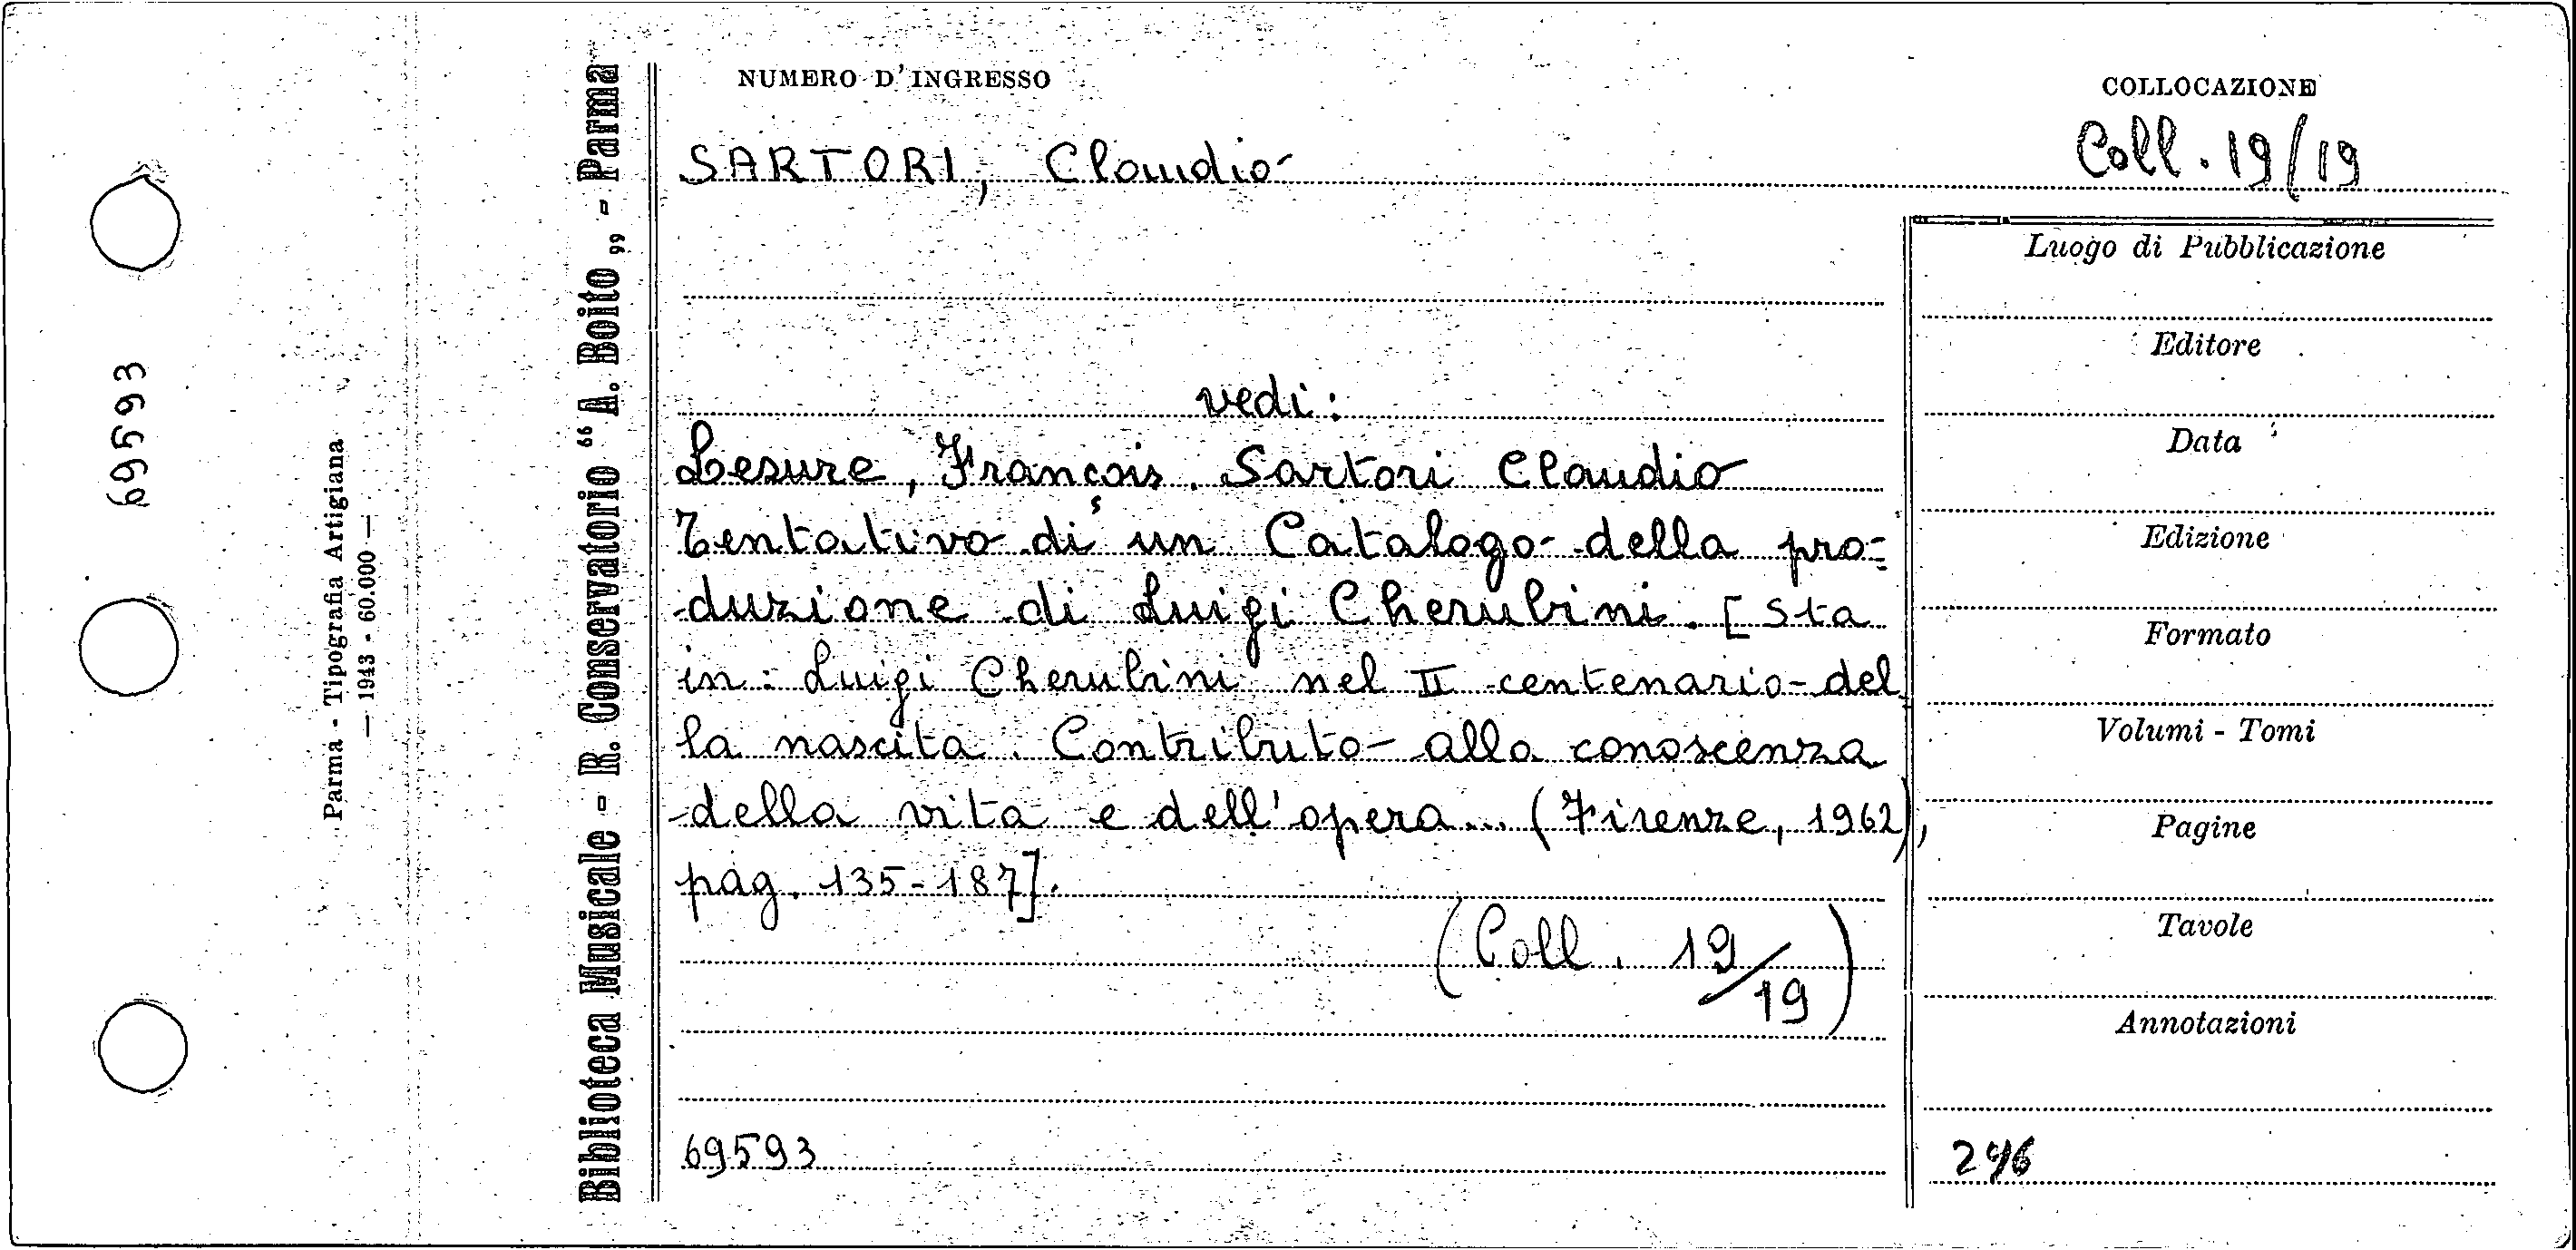 NUMERO D'INGRESSO
COLLOCAZIONE
SARTORI, Claudio
Coll. 19/19
vedi:
Lesure, François. Sartori Claudio
Tentativo di un Catalogo della pro=
duzione di Luigi Cherubini. [Sta
in: Luigi Cherubini nel II centenario del
la nascita. Contributo alla conoscenza
della vita e dell'opera... (Firenze, 1962),
pag. 135-187].
(Coll. 19/19)
69593
Luogo di Pubblicazione
Editore
Data
Edizione
Formato
Volumi - Tomi
Pagine
Tavole
Annotazioni
246
Biblioteca Musicale - R. Conservatorio “A. Boito„ - Parma
Parma - Tipografia Artigiana
— 1943 - 60.000 —
69593